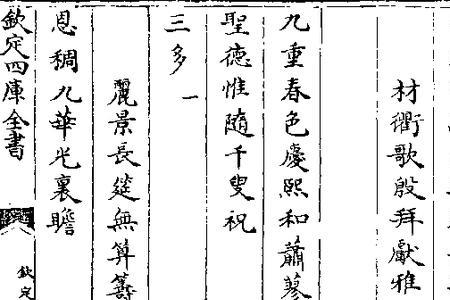 材衢歌殷拜獻雅
九重春色慶熙和蕭蔘
聖德惟隨千叟祝
三多一
麗景長筵無算籌
恩稠九華光裏瞻
欽定四庫全書
欽定